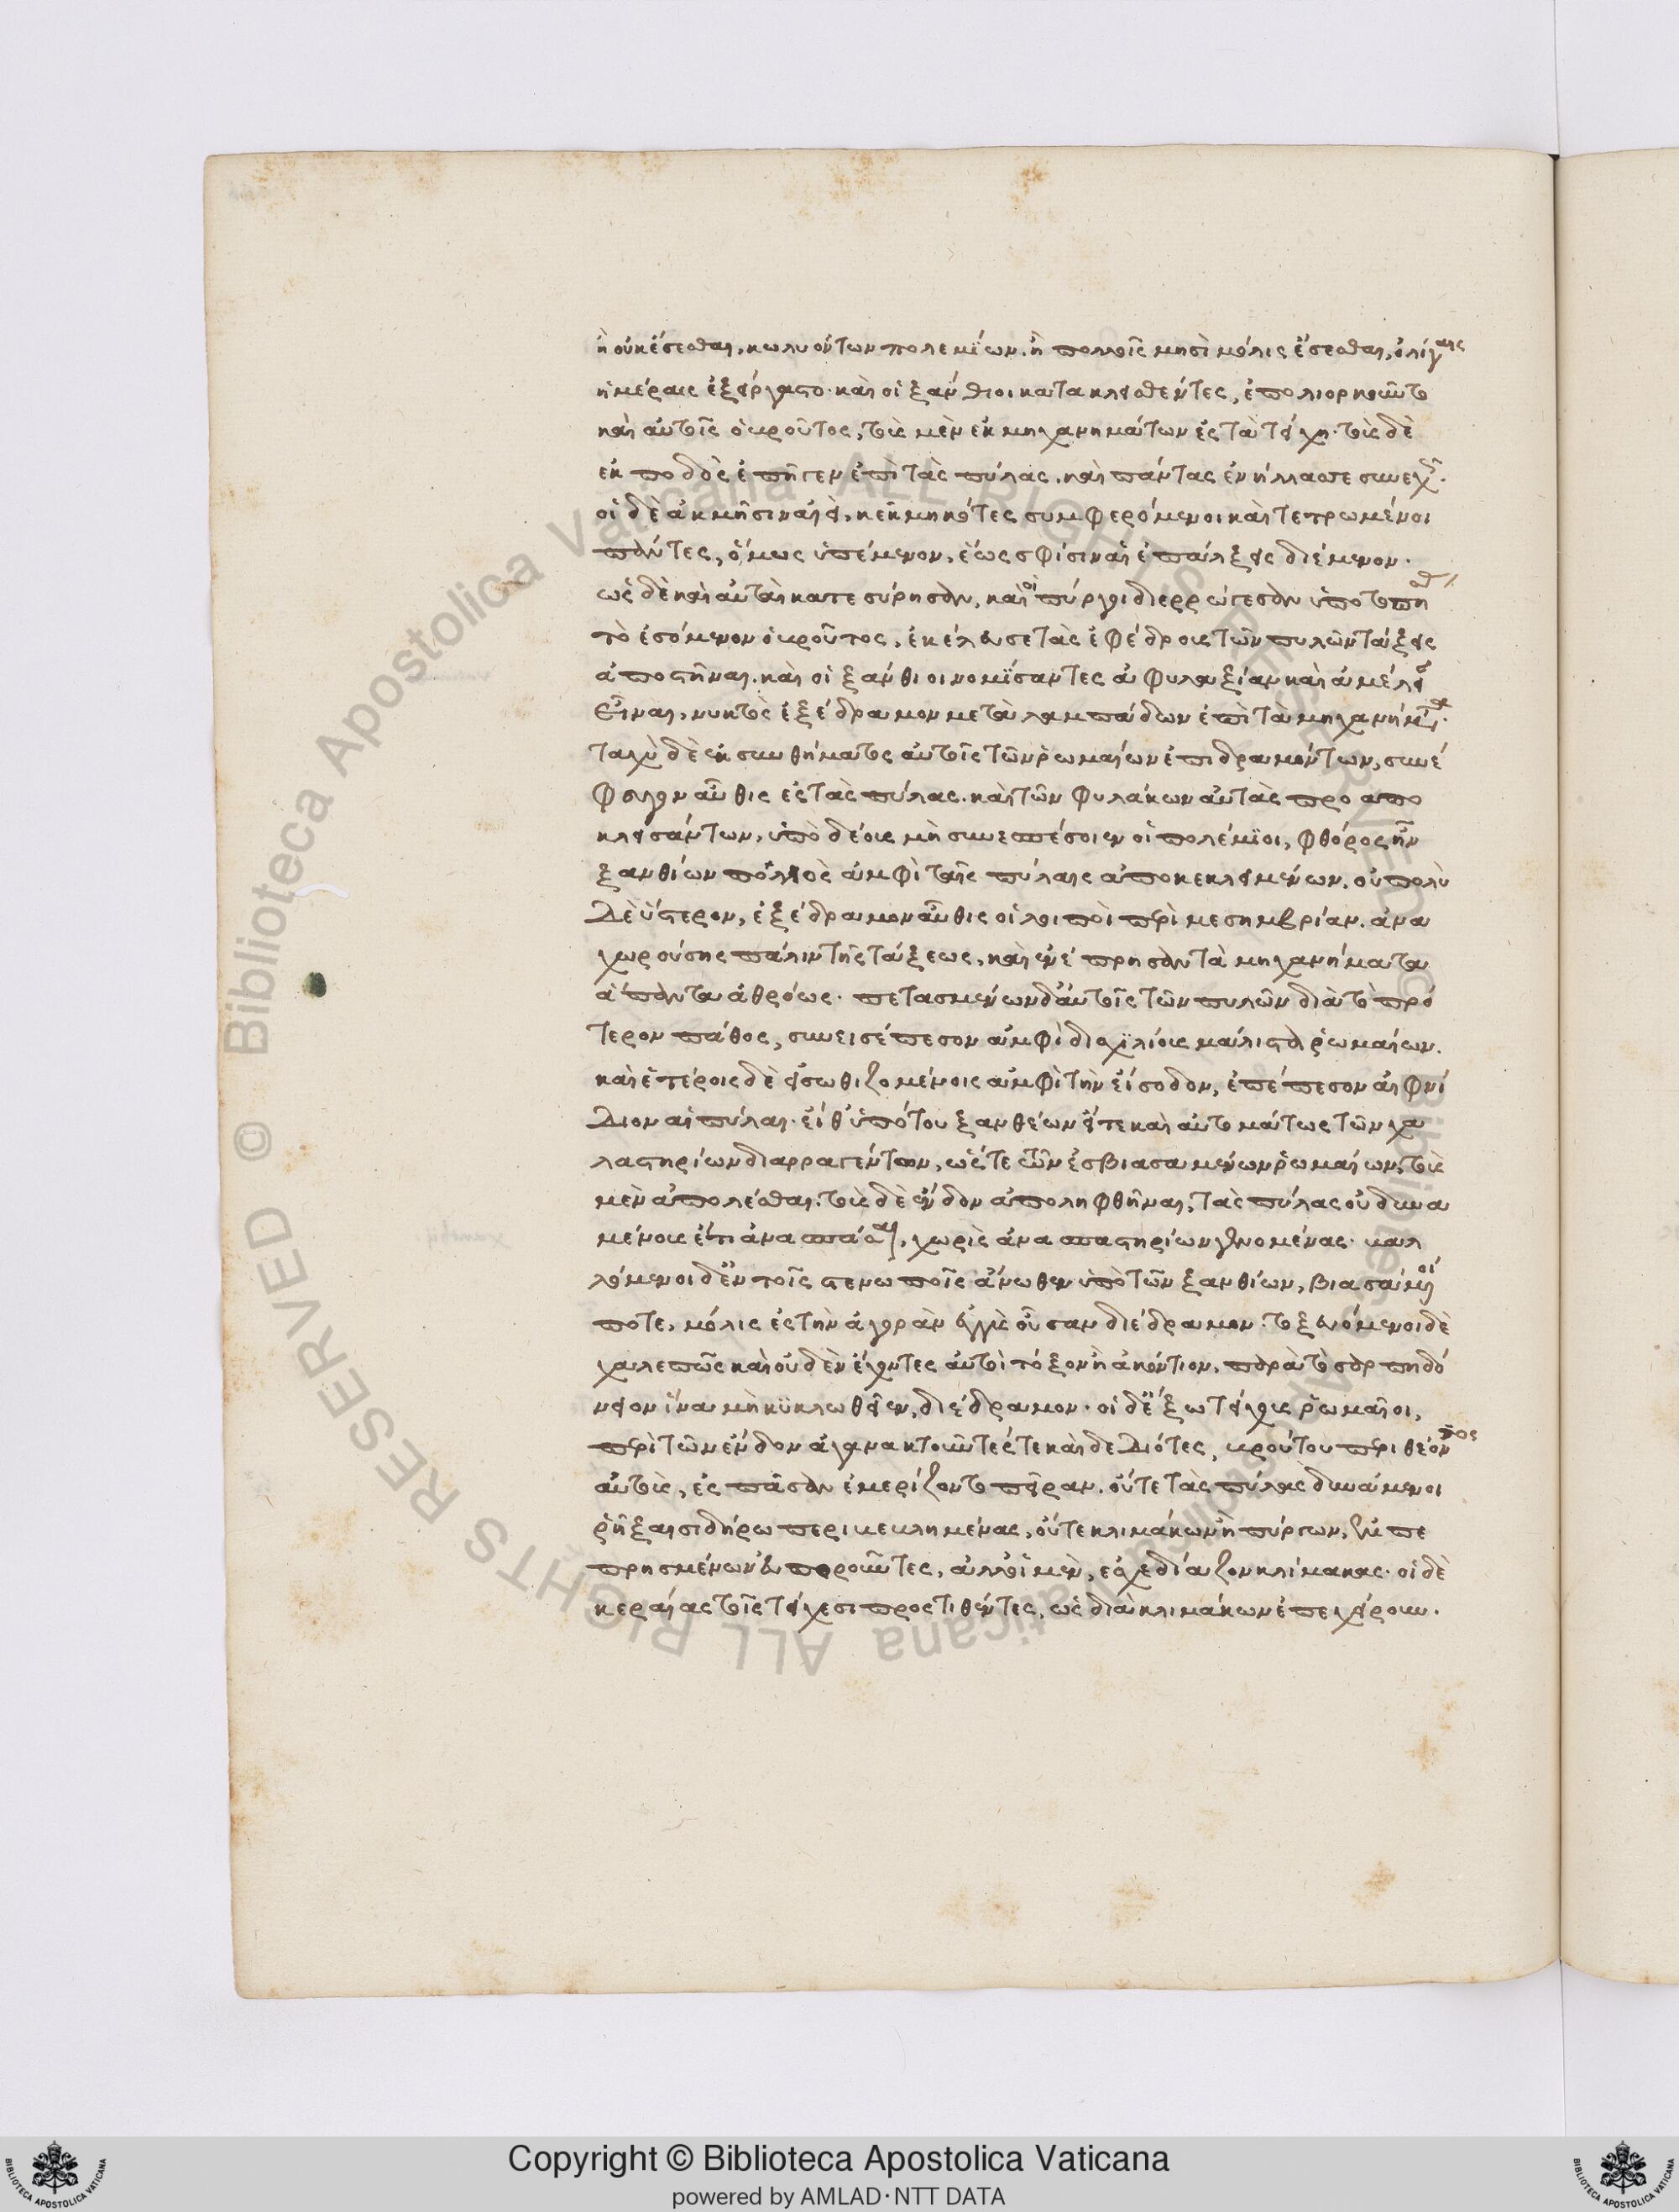 ἢ οὐκ ἔσεσθαι, κωλυόντων πολεμίων. ἢ πολλοῖς μησὶ μόλις ἔσεσθαι, ὀλίγαις
ἡμέραις ἐξείργαστο· καὶ οἱ ξάνθιοι κατακλεισθέντες, ἐπολιορκοῦντο
καὶ αὐτοῖς ὁ βροῦτος, τοὺς μὲν ἐκ μηχανημάτων ἐς τὰ τείχη· τοὺς δὲ
ἐκ ποδὸς ἐπῆγεν ἐπὶ τὰς πύλας. καὶ πάντας ἐνήλλασσε συνεχῶς.
οἱ δὲ ἀκμῆσιν αἰεὶ, κεκμηκότες συμφερόμενοι καὶ τετρωμένοι
πάντες, ὅμως ὑπέμενον, ἕως σφίσιν αἱ ἐπάλξεις διέμενον.
ὡς δὲ καὶ αὐταὶ κατεσύρησαν, καὶ οἱ πύργοι διερρώγεσαν ὑποτοπή
τὸ ἐσόμενον ὁ βροῦτος, ἐκέλευσε τὰς ἐφέδρους τῶν πυλῶν τάξεις
ἀποστῆναι. καὶ οἱ ξάνθιοι νομίσαντες ἀφυλαξίαν καὶ ἀμέλειαν
εἶναι, νυκτὸς ἐξέδραμον μετὰ λαμπάδων ἐπὶ τὰ μηχανήματα.
ταχὺ δὲ ἐκ συνθήματος αὐτοῖς τῶν ῥωμαίων ἐπιδραμόντων, συνέ
φευγον αὖθις ἐς τὰς πύλας. καὶ τῶν φυλάκων αὐτὰς προαπο
κλεισάντων, ὑπὸ δέους μὴ συνεσπέσοιεν οἱ πολέμιοι, φθόρος ἦν
ξανθίων πολὺς ἀμφὶ ταῖς πύλαις ἀποκεκλειμένων. οὐ πολὺ
δὲ ὕστερον, ἐξέδραμον αὖθις οἱ λοιποὶ περὶ μεσημβρίαν. ἀνα
χωρούσης πάλιν τῆς τάξεως, καὶ ἐνέπρησαν τὰ μηχανήματα
ἅπαντα ἀθρόως· πετασμένων δ' αὐτοῖς τῶν πυλῶν διὰ τὸ πρό
τερον πάθος, συνεισέπεσον ἀμφὶ δισχιλίους μάλιστα ῥωμαίων.
καὶ ἑτέροις δὲ εἰσωθιζομένοις ἀμφὶ τὴν εἴσοδον, ἐπέπεσον αἰφνί
διον αἱ πύλαι· εἴθ' ὑπό του ξανθίων εἴτε καὶ αὐτομάτως τῶν χα
λαστηρίων διαρραγέντων, ὥστε τῶν ἐσβιασαμένων ῥωμαίων, τοὺς
μὲν ἀπολέσθαι. τοὺς δὲ ἔνδον ἀποληφθῆναι, τὰς πύλας οὐ δυνα
μένους ἔτι ἀνασπάσαι, χωρὶς ἀνασπαστηρίων γενομένας· βαλ
λόμενοι δ' ἐν τοῖς στενωποῖς ἄνωθεν ὑπὸ τῶν ξανθίων, βιασάμενοί
ποτε, μόλις ἐς τὴν ἀγορὰν ἐγγὺς οὖσαν διέδραμον. τοξευόμενοι δὲ
χαλεπῶς καὶ οὐδὲν ἔχοντες αὐτοὶ τόξον ἢ ἀκόντιον, παρὰ τὸ σαρπηδό
νειον ἵνα μὴ κυκλωθεῖεν, διέδραμον· οἱ δ' ἔξω τείχους ῥωμαῖοι,
περὶ τῶν ἔνδον ἀγανακτοῦντές τε καὶ δεδιότες, βρούτου περιθέοντος
αὐτοὺς, ἐς πᾶσαν ἐμερίζοντο πεῖραν. οὔτε τὰς πύλας δυνάμενοι
ῥῆξαι σιδήρῳ περιβεβλημένας, οὔτε κλιμάκων ἢ πύργων, ἐμπε
πρησμένων εὐποροῦντες, ἀλλ' οἱ μὲν, ἐσχεδίαζον κλίμακας· οἱ δὲ
κεραίας τοῖς τείχεσι προστιθέντες, ὡς διὰ κλιμάκων ἐπεχείρουν.
Copyright © Biblioteca Apostolica Vaticana
powered by AMLAD·NTT DATA
© Biblioteca Apostolica Vaticana ALL RIGHTS RESERVED